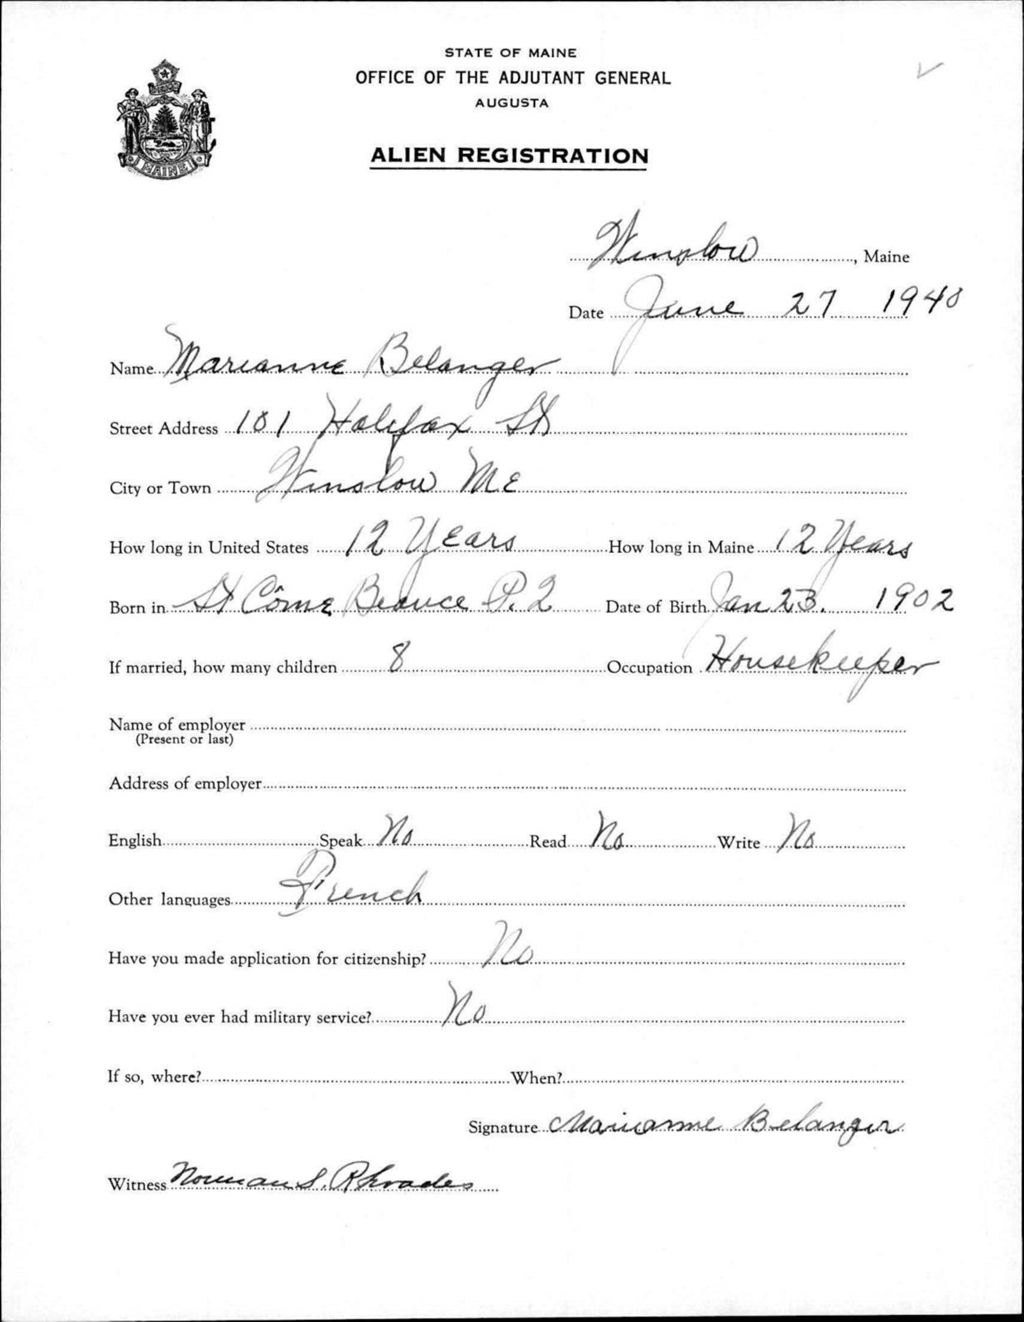 STATE OF MAINE
OFFICE OF THE ADJUTANT GENERAL
AUGUSTA
ALIEN REGISTRATION
MAINE
Winslow, Maine
Date June 27 1940
Name Marianne Belanger
Street Address 101 Halifax St
City or Town Winslow Me
How long in United States 12 Years How long in Maine 12 Years
Born in St Côme Beauce P.Q Date of Birth Jan 23. 1902
If married, how many children 8 Occupation Housekeeper
Name of employer
(Present or last)
Address of employer
English Speak No Read No Write No
Other languages French
Have you made application for citizenship? No
Have you ever had military service? No
If so, where? When?
Signature Marianne Belanger
Witness Norman S. Rhoades